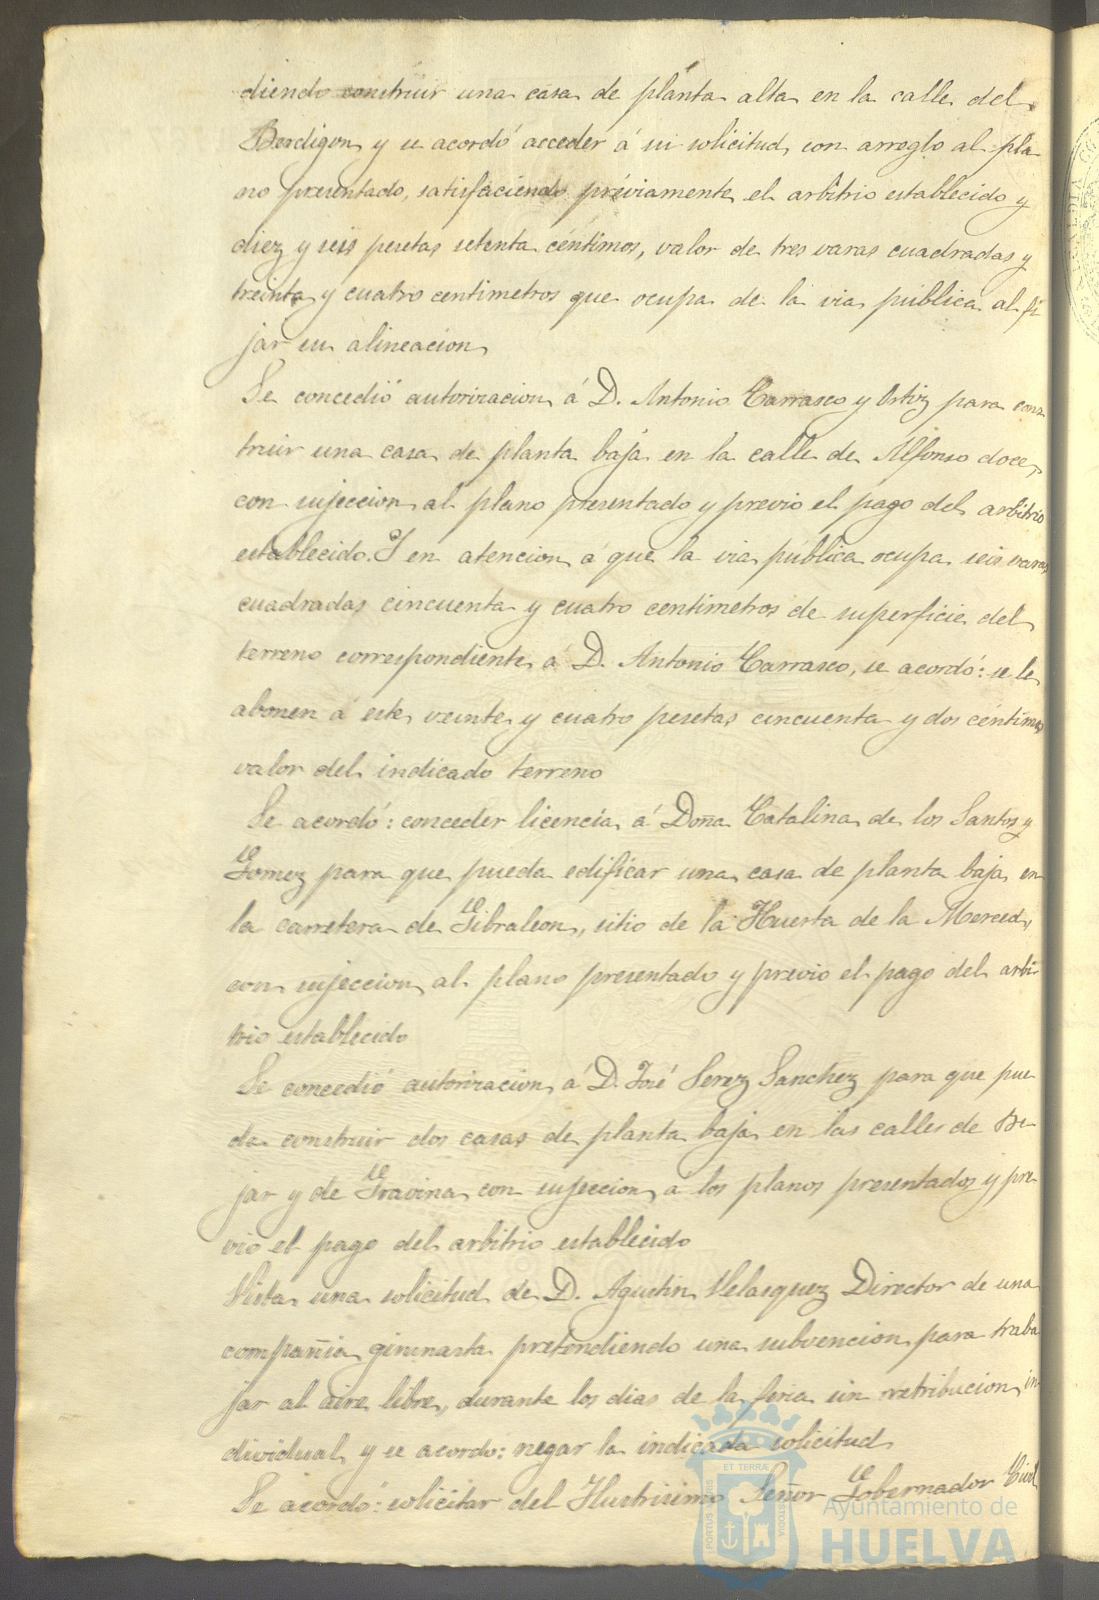 diendo construir una casa de planta alta en la calle del
Berdigon, y se acordó acceder á su solicitud, con arreglo al pla
no presentado, satisfaciendo préviamente el arbitrio establecido y
diez y seis pesetas setenta céntimos, valor de tres varas cuadradas y
treinta y cuatro centimetros que ocupa de la via pública al fi
jar su alineacion
Se concedió autorizacion á D. Antonio Carrasco y Ortiz para cons
truir una casa de planta baja en la calle de Alfonso doce,
con sujeccion al plano presentado y previo el pago del arbitrio
establecido. Y en atencion á que la via pública ocupa seis varas
cuadradas cincuenta y cuatro centimetros de superficie del
terreno correspondiente á D. Antonio Carrasco, se acordó: se le
abonen á este veinte y cuatro pesetas cincuenta y dos céntimos
valor del indicado terreno
Se acordó: conceder licencia á Doña Catalina de los Santos y
Gomez para que pueda edificar una casa de planta baja en
la carretera de Gibraleon, sitio de la Huerta de la Merced,
con sujeccion al plano presentado y previo el pago del arbi
trio establecido
Se concedió autorizacion á D. José Perez Sanchez para que pue
da construir dos casas de planta baja en las calles de Be
jar y de Gravina con sujeccion á los planos presentados y pre
vio el pago del arbitrio establecido
Vista una solicitud de D. Agustin Velasquez Director de una
compañia gimnasta pretendiendo una subvencion para traba
jar al aire libre, durante los dias de la feria sin retribucion in
dividual, y se acordo: negar la indicada solicitud
Se acordó: solicitar del Ilustrisimo Señor Gobernador Civil
ET TERRÆ
PORTUS MARIS
CUSTODIA
Ayuntamiento de
HUELVA